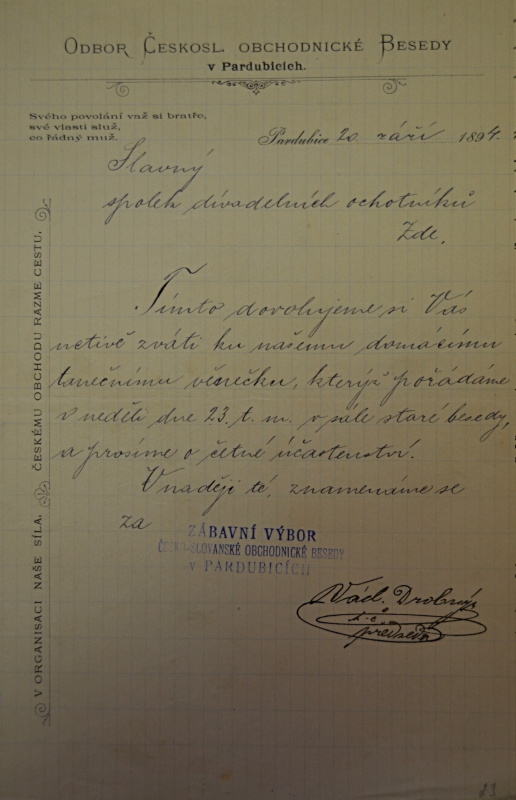 ODBOR ČESKOSL. OBCHODNICKÉ BESEDY
v Pardubicích.
Svého povolání važ si bratře,
své vlasti služ,
co řádný muž.
Pardubice 20 září 1894.
Slavný
spolek divadelních ochotníků
Zde.
Tímto dovolujeme si Vás
uctivě zváti ku našemu domácímu
tanečnímu věnečku, kterýž pořádáme
v neděli dne 23. t. m. v sále staré besedy,
a prosíme o četné účastenství.
V naději té, znamenáme se
za
ZÁBAVNÍ VÝBOR
ČESKO-SLOVANSKÉ OBCHODNICKÉ BESEDY
V PARDUBICÍCH
Václ. Drobný
t. č.
předseda
V ORGANISACI NAŠE SÍLA. ČESKÉMU OBCHODU RAZME CESTU.